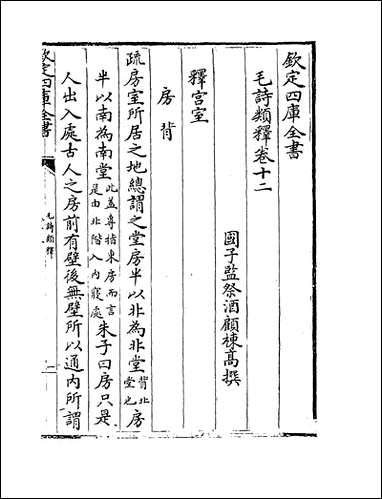 欽定四庫全書
毛詩類釋卷十二
國子監祭酒顧棟高撰
釋宮室
房 背
疏房室所居之地總謂之堂房半以北為北堂背北堂也房
半以南為南堂此蓋專指東房而言是由北階入內寢處朱子曰房只是
人出入處古人之房前有壁後無壁所以通內所謂
欽定四庫全書
毛詩類釋